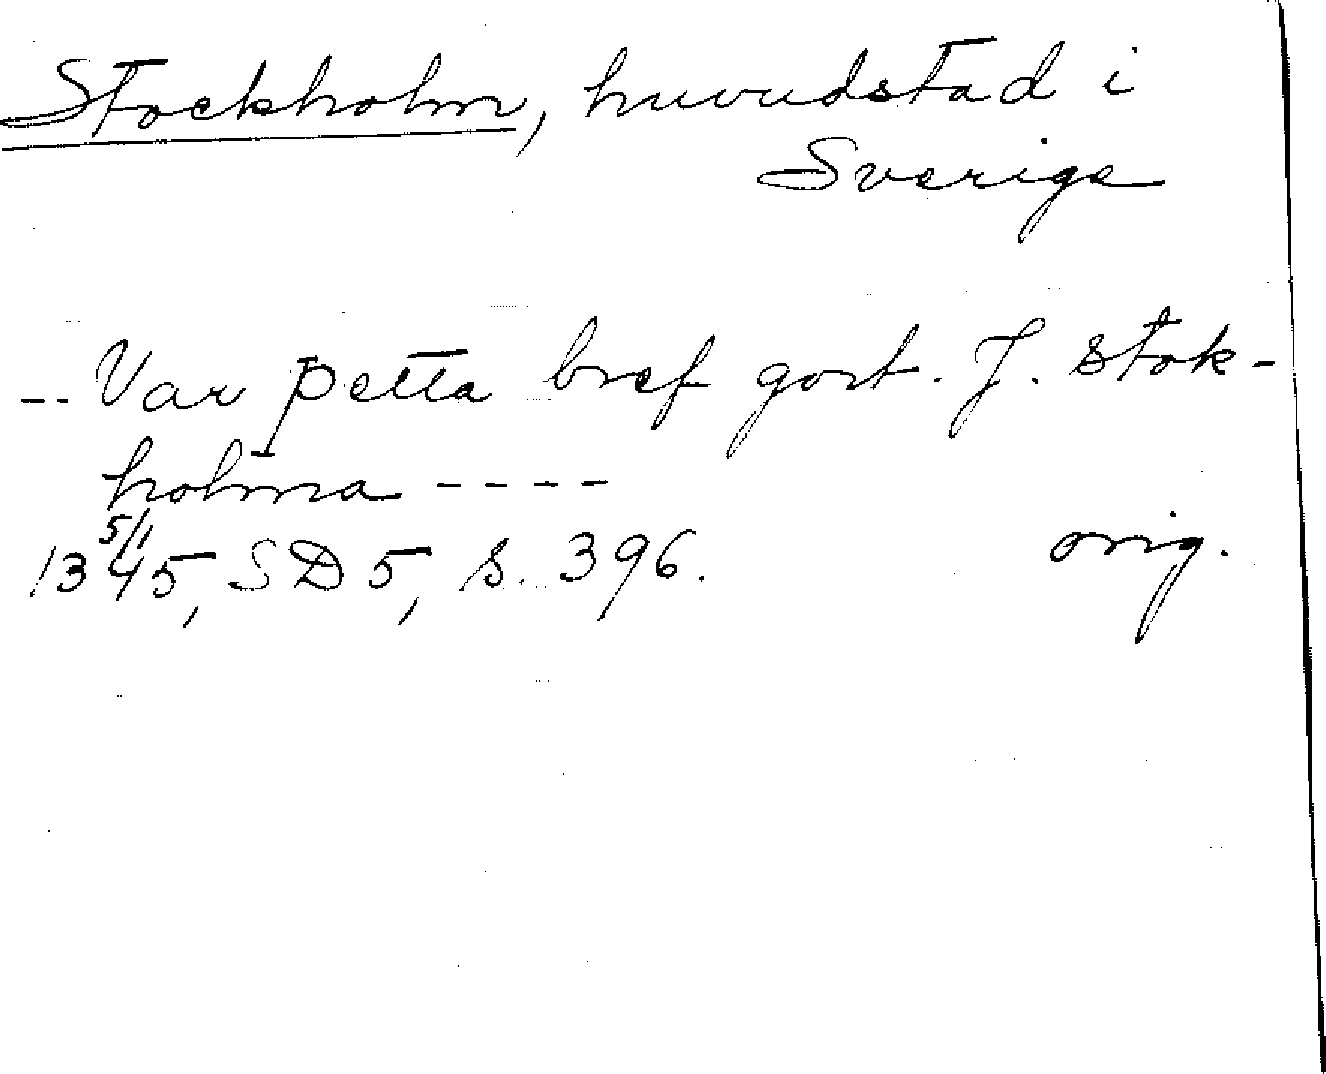 Stockholm, huvudstad i
Sverige
-- Var þetta bref gort. J. stok-
holma ----
13 5/1 45, SD 5, s. 396. orig.